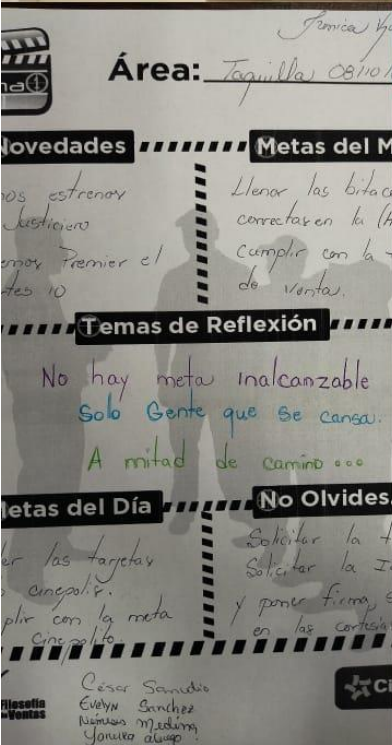 Área: Taquilla 08/10/
Novedades
os estrenos
Justiciero
emos Premier el
tes 10
Metas del M
Llenar las bitac
correctas en la
Cumplir con la
de venta.
Temas de Reflexión
No hay meta inalcanzable
Solo Gente que se cansa.
A mitad de camino...
Metas del Día
er las tarjetas
cinepolis.
plir con la meta
Cinepolito.
No Olvides
Solicitar la
Solicitar la
y poner firma
en las cortesia
Filosofía
Ventas
César Samudio
Evelyn Sanchez
Medina
Ci